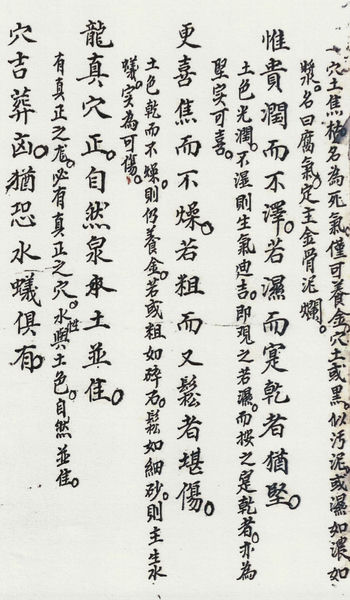 穴土焦枯。名為死氣。僅可養金。穴土或黑。似污泥。或濕如濃如
漿。名曰腐氣。定主金骨泥爛。
惟貴潤而不澤。若濕而寔乾者猶堅。
土色光潤。不濕則生氣迪吉。即現之若濕。而按之寔乾者。亦為
堅实可喜。
更喜焦而不燥。若粗而又鬆者堪傷。
土色乾而不燥。則仍養金。若或粗如碎石。鬆如細砂。則主生水
蟻。实為可傷。
龍真穴正。自然泉水土並佳。
有真正之龙。必有真正之穴。水性與土色。自然並佳。
穴吉葬凶。猶恐水蟻俱有。